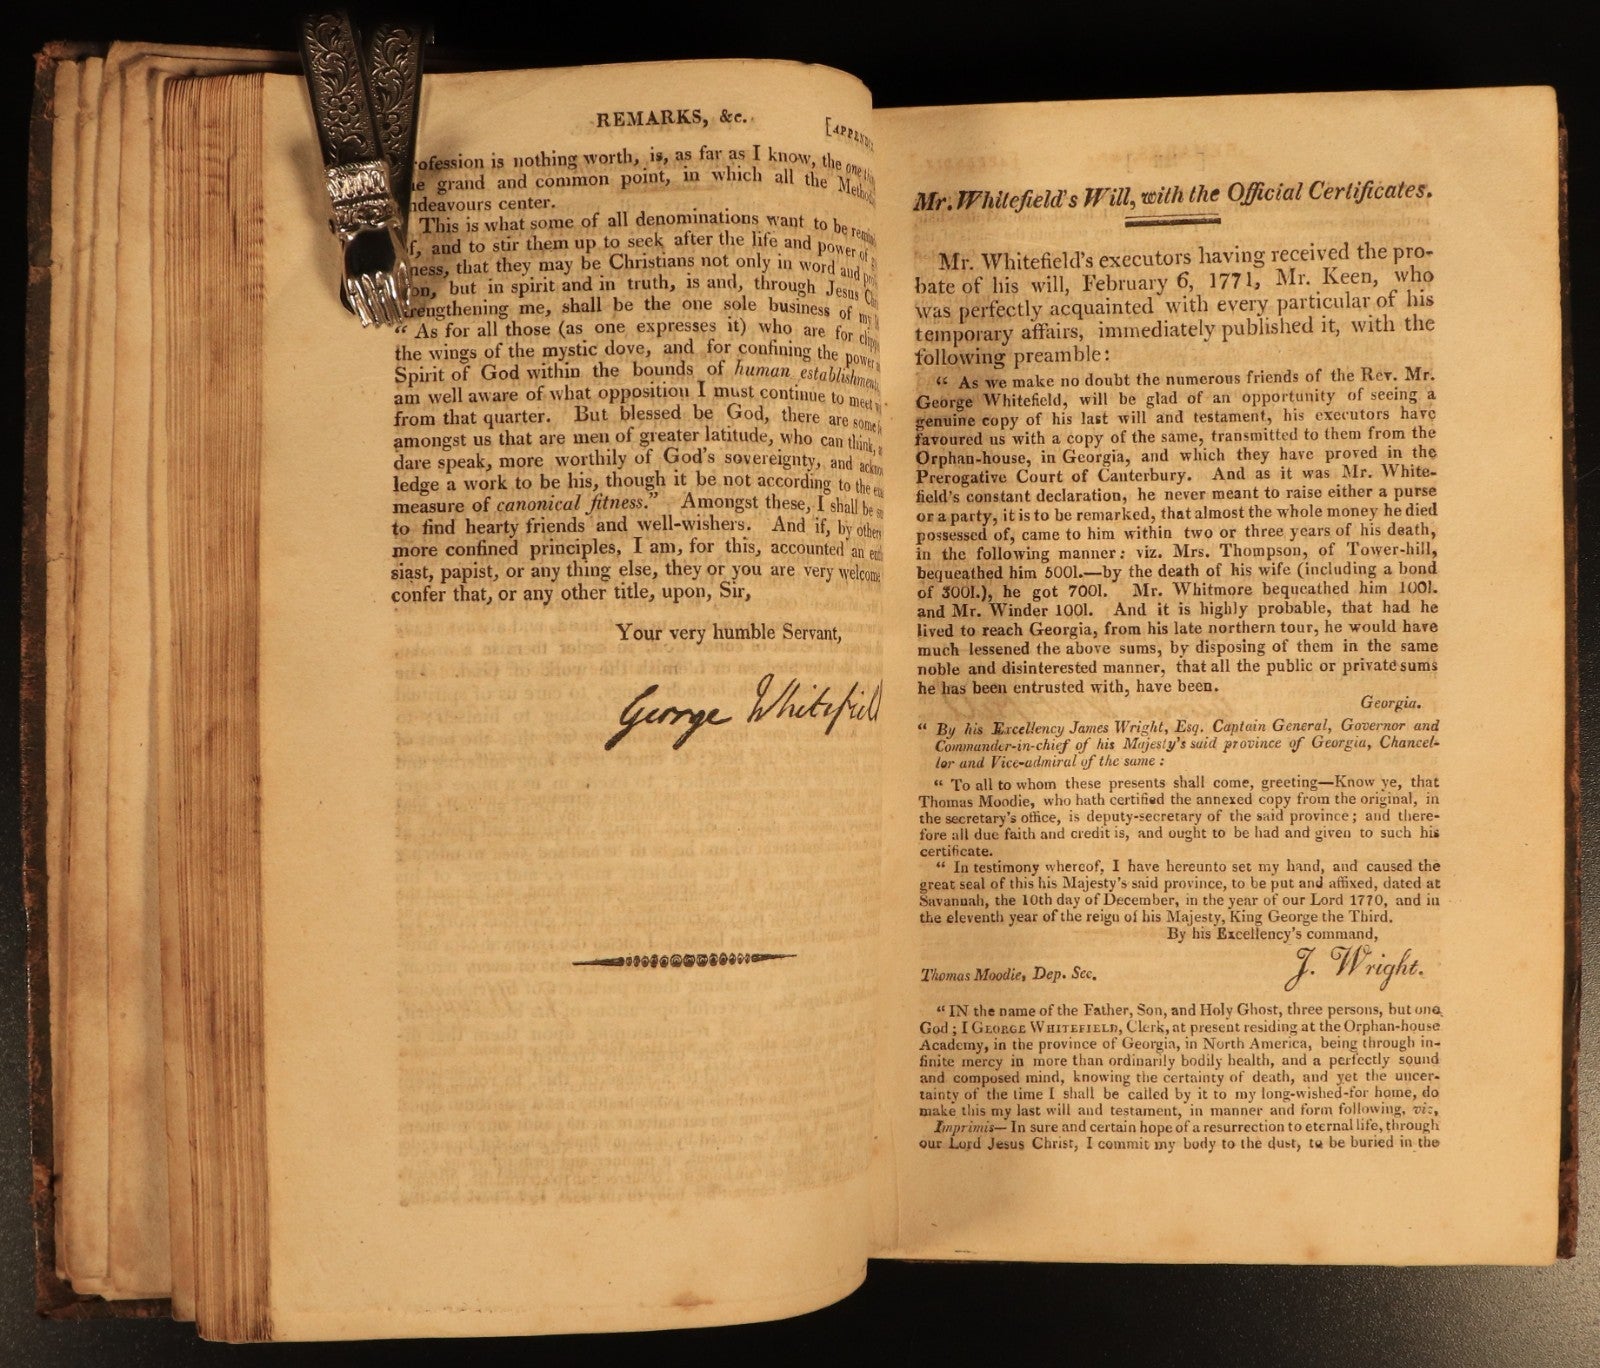 REMARKS, &c.
[APPENDIX
ofession is nothing worth, is, as far as I know, the one
grand and common point, in which all the
ndeavours center.
This is what some of all denominations want to be
and to stir them up to seek after the life and power of
ness, that they may be Christians not only in word and
on, but in spirit and in truth, is and, through Jesus
rengthening me, shall be the one sole business of my
“ As for all those (as one expresses it) who are for
the wings of the mystic dove, and for confining the power
Spirit of God within the bounds of human establishments
am well aware of what opposition I must continue to meet
from that quarter. But blessed be God, there are some
amongst us that are men of greater latitude, who can think,
dare speak, more worthily of God's sovereignty, and
ledge a work to be his, though it be not according to the
measure of canonical fitness.” Amongst these, I shall be
to find hearty friends and well-wishers. And if, by
more confined principles, I am, for this, accounted an
siast, papist, or any thing else, they or you are very welcome
confer that, or any other title, upon, Sir,
Your very humble Servant,
George Whitefield
Mr. Whitefield's Will, with the Official Certificates.
Mr. Whitefield's executors having received the pro-
bate of his will, February 6, 1771, Mr. Keen, who
was perfectly acquainted with every particular of his
temporary affairs, immediately published it, with the
following preamble:
“ As we make no doubt the numerous friends of the Rev. Mr.
George Whitefield, will be glad of an opportunity of seeing a
genuine copy of his last will and testament, his executors have
favoured us with a copy of the same, transmitted to them from the
Orphan-house, in Georgia, and which they have proved in the
Prerogative Court of Canterbury. And as it was Mr. White-
field's constant declaration, he never meant to raise either a purse
or a party, it is to be remarked, that almost the whole money he died
possessed of, came to him within two or three years of his death,
in the following manner: viz. Mrs. Thompson, of Tower-hill,
bequeathed him 500l.—by the death of his wife (including a bond
of 300l.), he got 700l. Mr. Whitmore bequeathed him 100l.
and Mr. Winder 100l. And it is highly probable, that had he
lived to reach Georgia, from his late northern tour, he would have
much lessened the above sums, by disposing of them in the same
noble and disinterested manner, that all the public or private sums
he has been entrusted with, have been.
Georgia.
“ By his Excellency James Wright, Esq. Captain General, Governor and
Commander-in-chief of his Majesty's said province of Georgia, Chancel-
lor and Vice-admiral of the same :
“ To all to whom these presents shall come, greeting—Know ye, that
Thomas Moodie, who hath certified the annexed copy from the original, in
the secretary's office, is deputy-secretary of the said province; and there-
fore all due faith and credit is, and ought to be had and given to such his
certificate.
“ In testimony whereof, I have hereunto set my hand, and caused the
great seal of this his Majesty's said province, to be put and affixed, dated at
Savannah, the 10th day of December, in the year of our Lord 1770, and in
the eleventh year of the reign of his Majesty, King George the Third.
By his Excellency's command,
J. Wright.
Thomas Moodie, Dep. Sec.
“ IN the name of the Father, Son, and Holy Ghost, three persons, but one
God ; I GEORGE WHITEFIELD, Clerk, at present residing at the Orphan-house
Academy, in the province of Georgia, in North America, being through in-
finite mercy in more than ordinarily bodily health, and a perfectly sound
and composed mind, knowing the certainty of death, and yet the uncer-
tainty of the time I shall be called by it to my long-wished-for home, do
make this my last will and testament, in manner and form following, viz.
Imprimis— In sure and certain hope of a resurrection to eternal life, through
our Lord Jesus Christ, I commit my body to the dust, to be buried in the